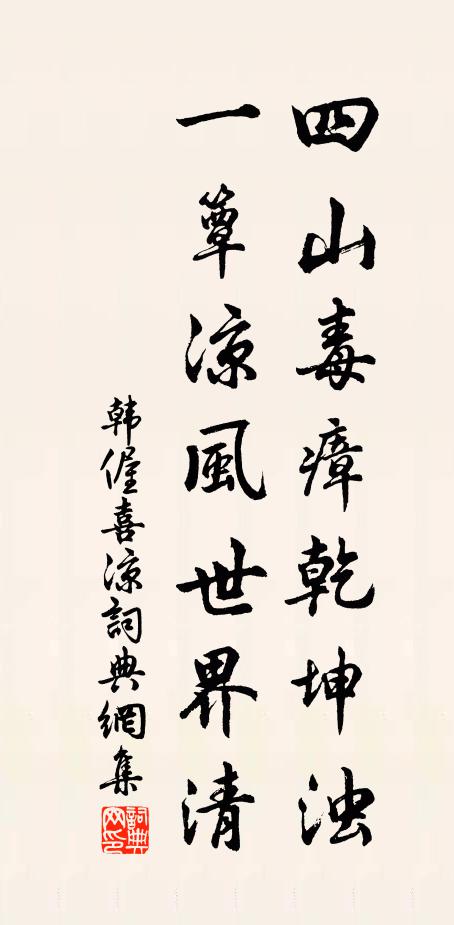 四山毒瘴乾坤浊
一簟凉風世界清
韩偓喜凉詞典網集
詞典网印